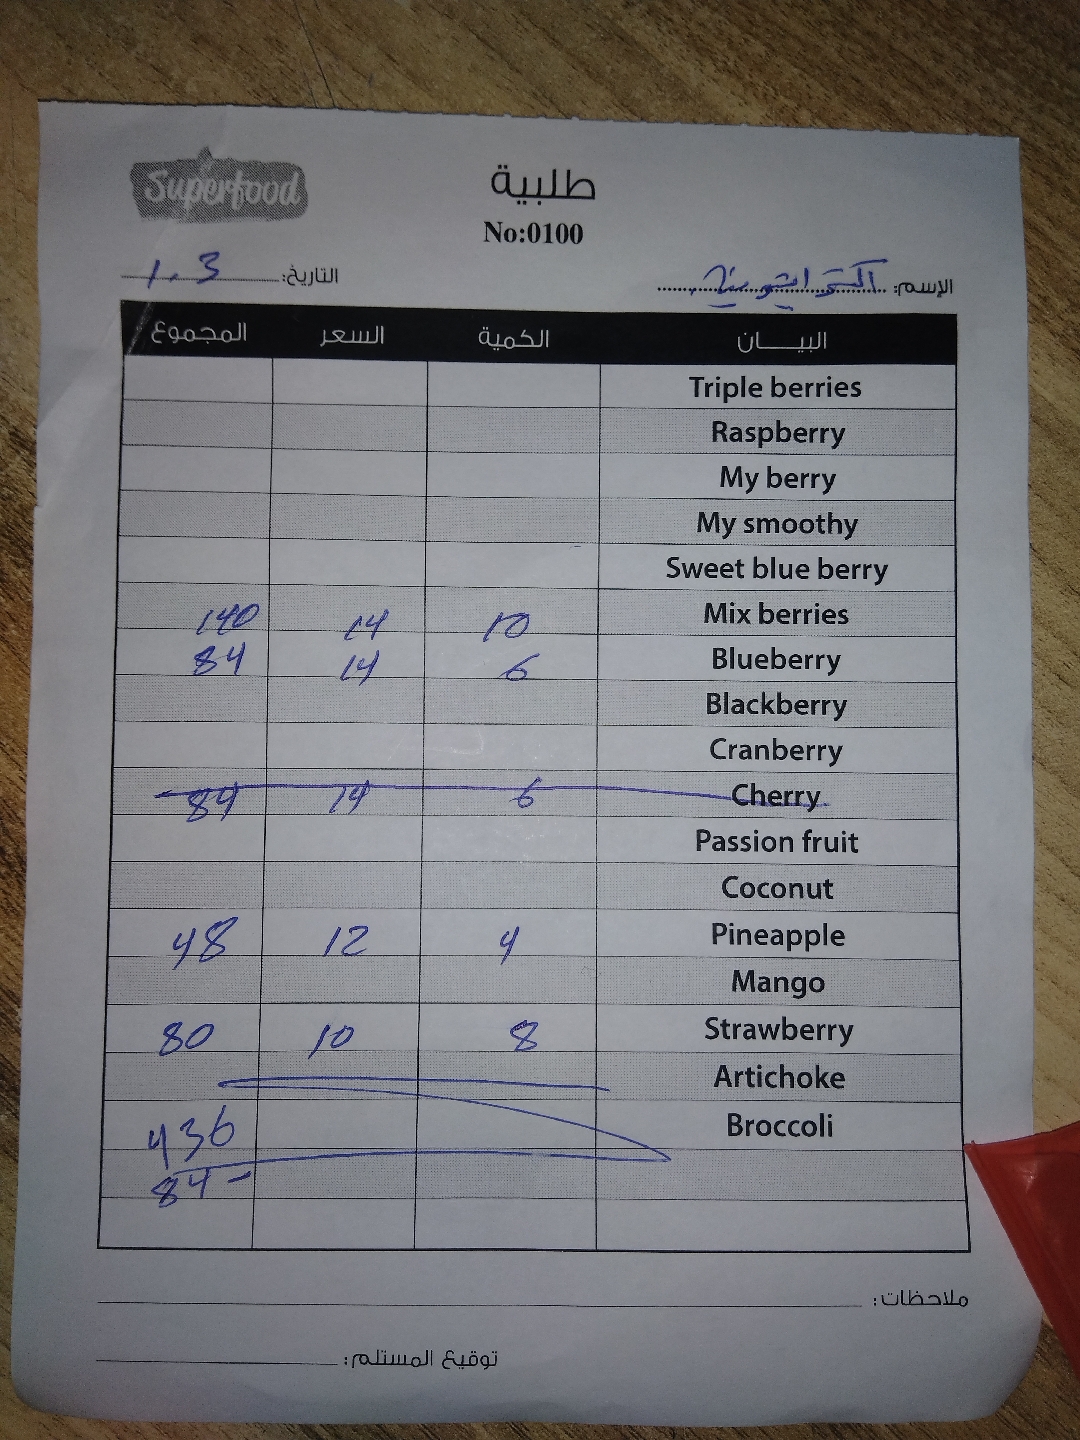 Superfood
طلبية
No:0100
الإسم:
التاريخ: 1.3
البيـــان الكمية السعر المجموع
Triple berries
Raspberry
My berry
My smoothy
Sweet blue berry
Mix berries 10 14 140
Blueberry 6 14 84
Blackberry
Cranberry
Cherry 6 14 84
Passion fruit
Coconut
Pineapple 4 12 48
Mango
Strawberry 8 10 80
Artichoke
Broccoli 436
84 -
ملاحظات:
توقيع المستلم: